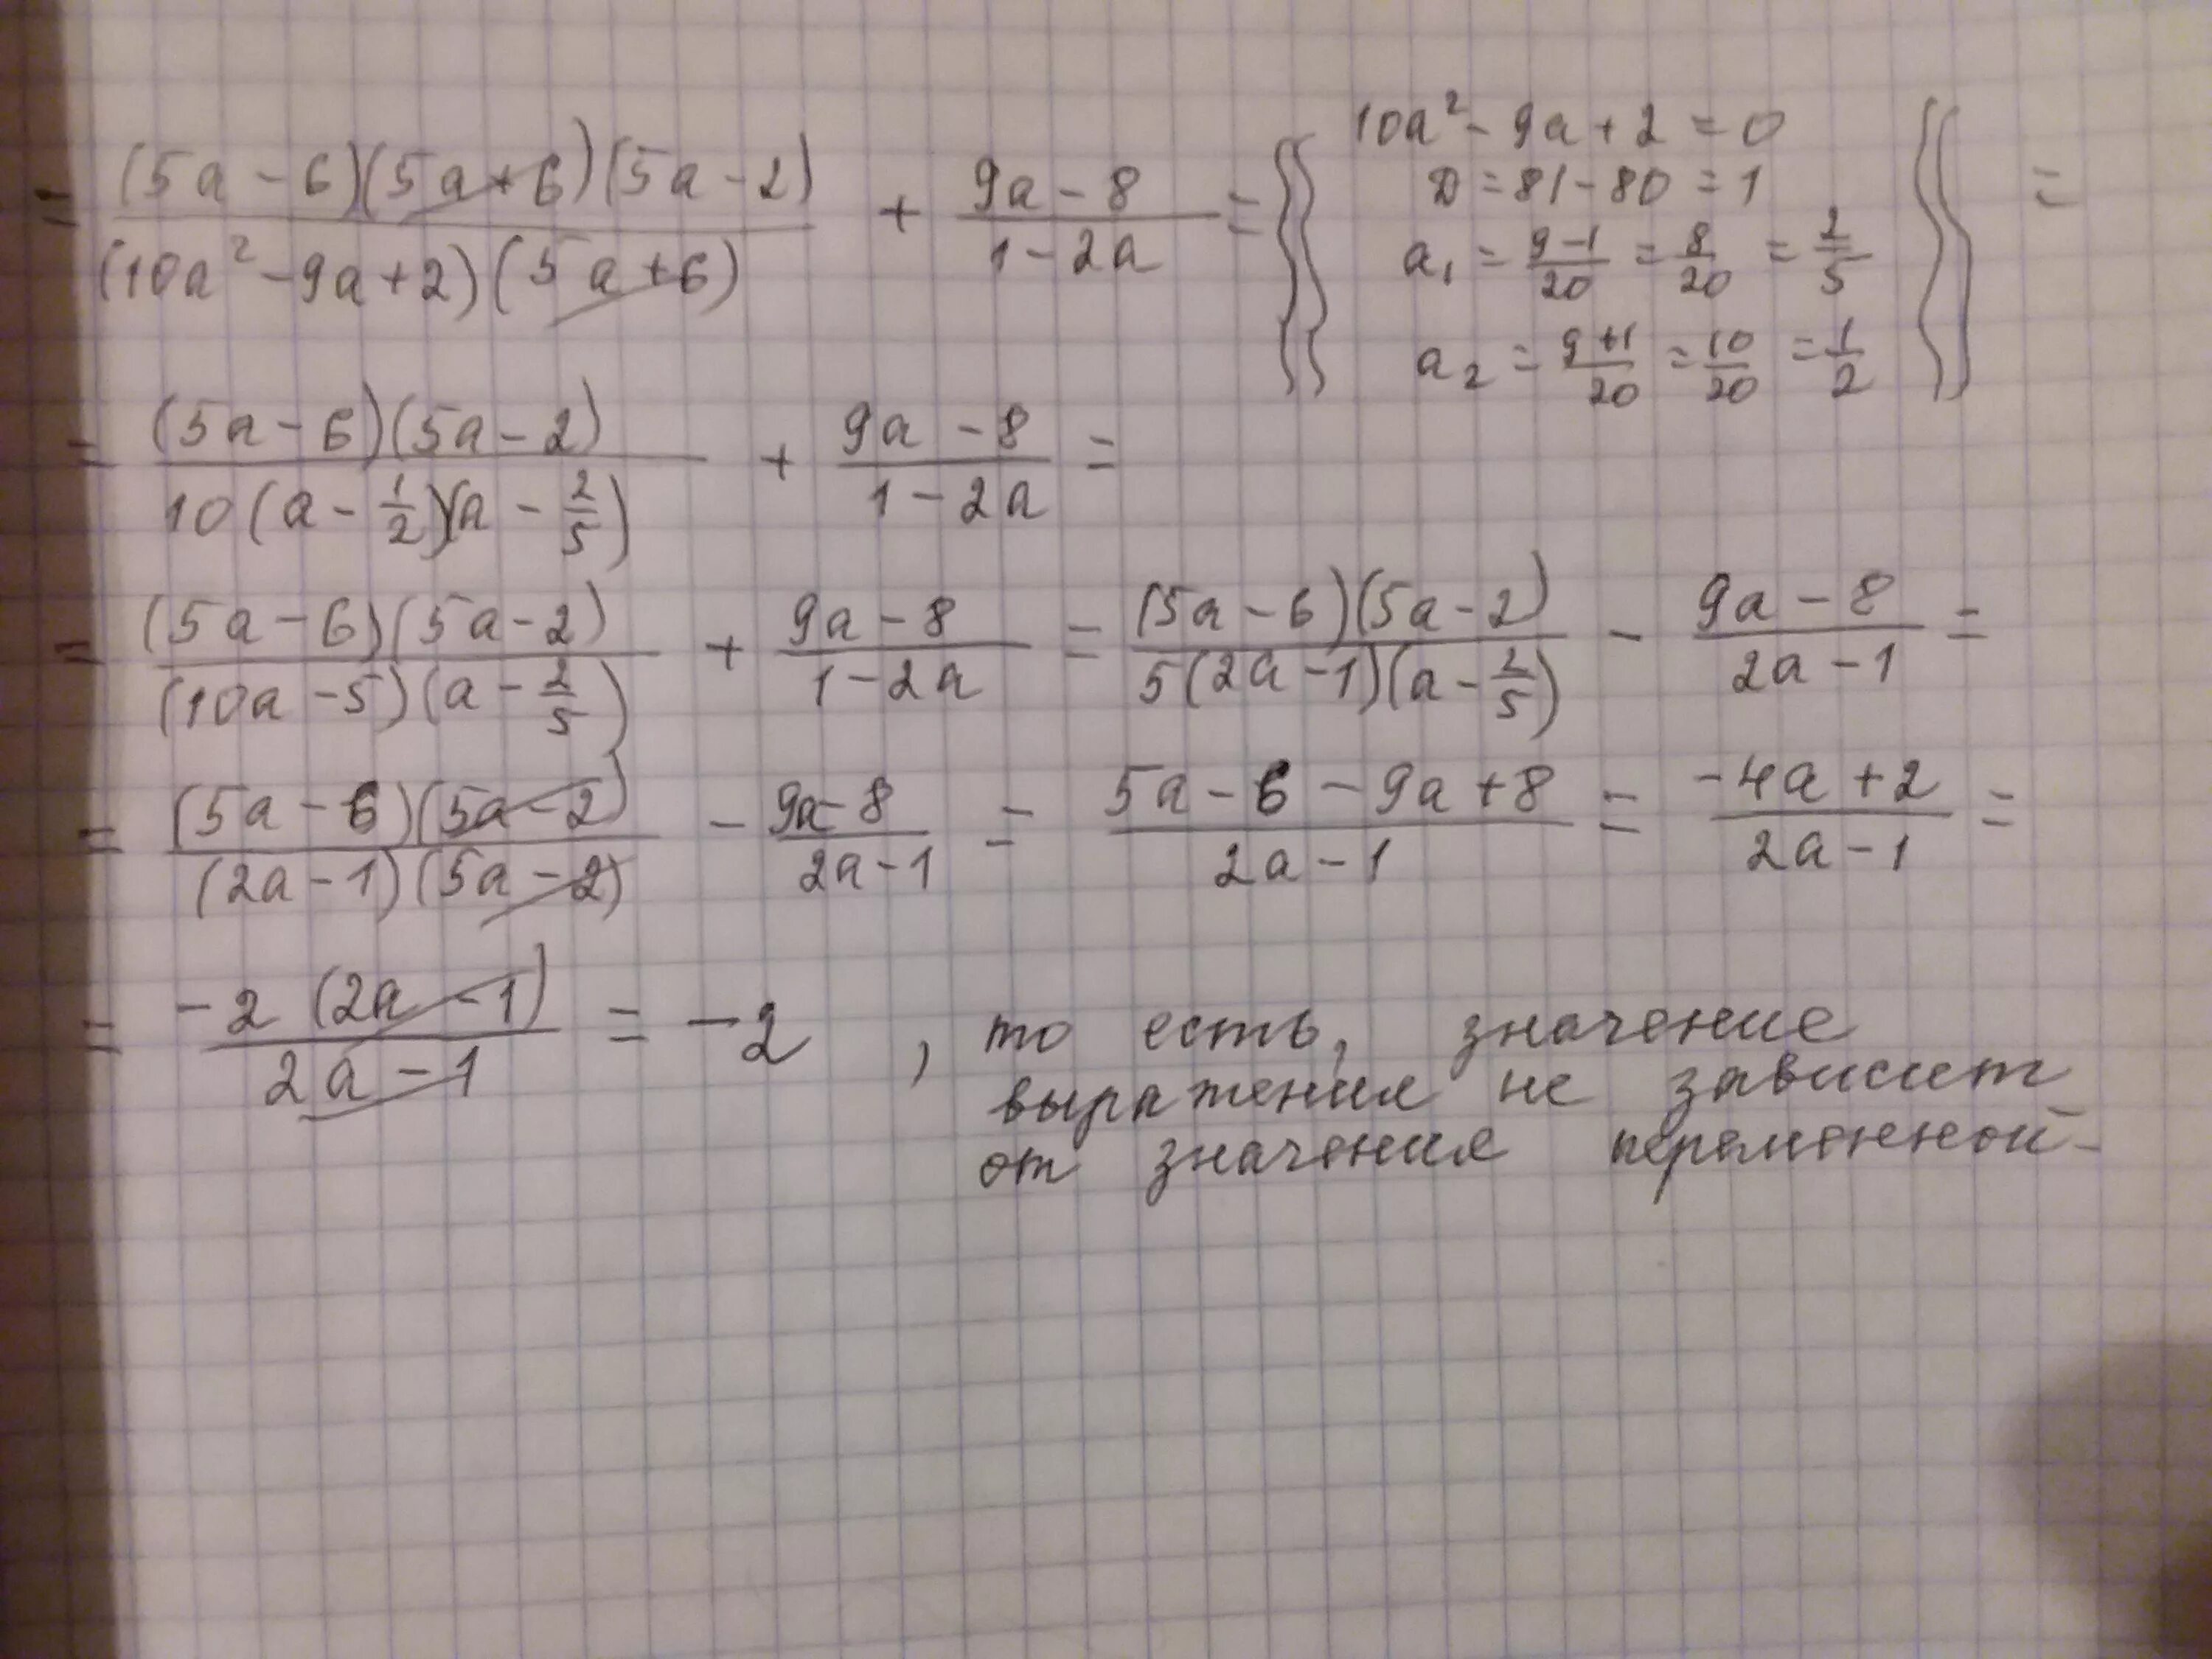 = (5a - 6)(5a + 6)(5a - 2) / (10a² - 9a + 2)(5a + 6) + 9a - 8 / 1 - 2a = {{ 10a² - 9a + 2 = 0
D = 81 - 80 = 1
a₁ = 9 - 1 / 20 = 8/20 = 2/5
a₂ = 9 + 1 / 20 = 10/20 = 1/2 }} =
= (5a - 6)(5a - 2) / 10(a - 1/2)(a - 2/5) + 9a - 8 / 1 - 2a =
= (5a - 6)(5a - 2) / (10a - 5)(a - 2/5) + 9a - 8 / 1 - 2a = (5a - 6)(5a - 2) / 5(2a - 1)(a - 2/5) - 9a - 8 / 2a - 1 =
= (5a - 6)(5a - 2) / (2a - 1)(5a - 2) - 9a - 8 / 2a - 1 = 5a - 6 - 9a + 8 / 2a - 1 = -4a + 2 / 2a - 1 =
= -2 (2a - 1) / 2a - 1 = -2 , то есть, значение
выражения не зависит
от значения переменной